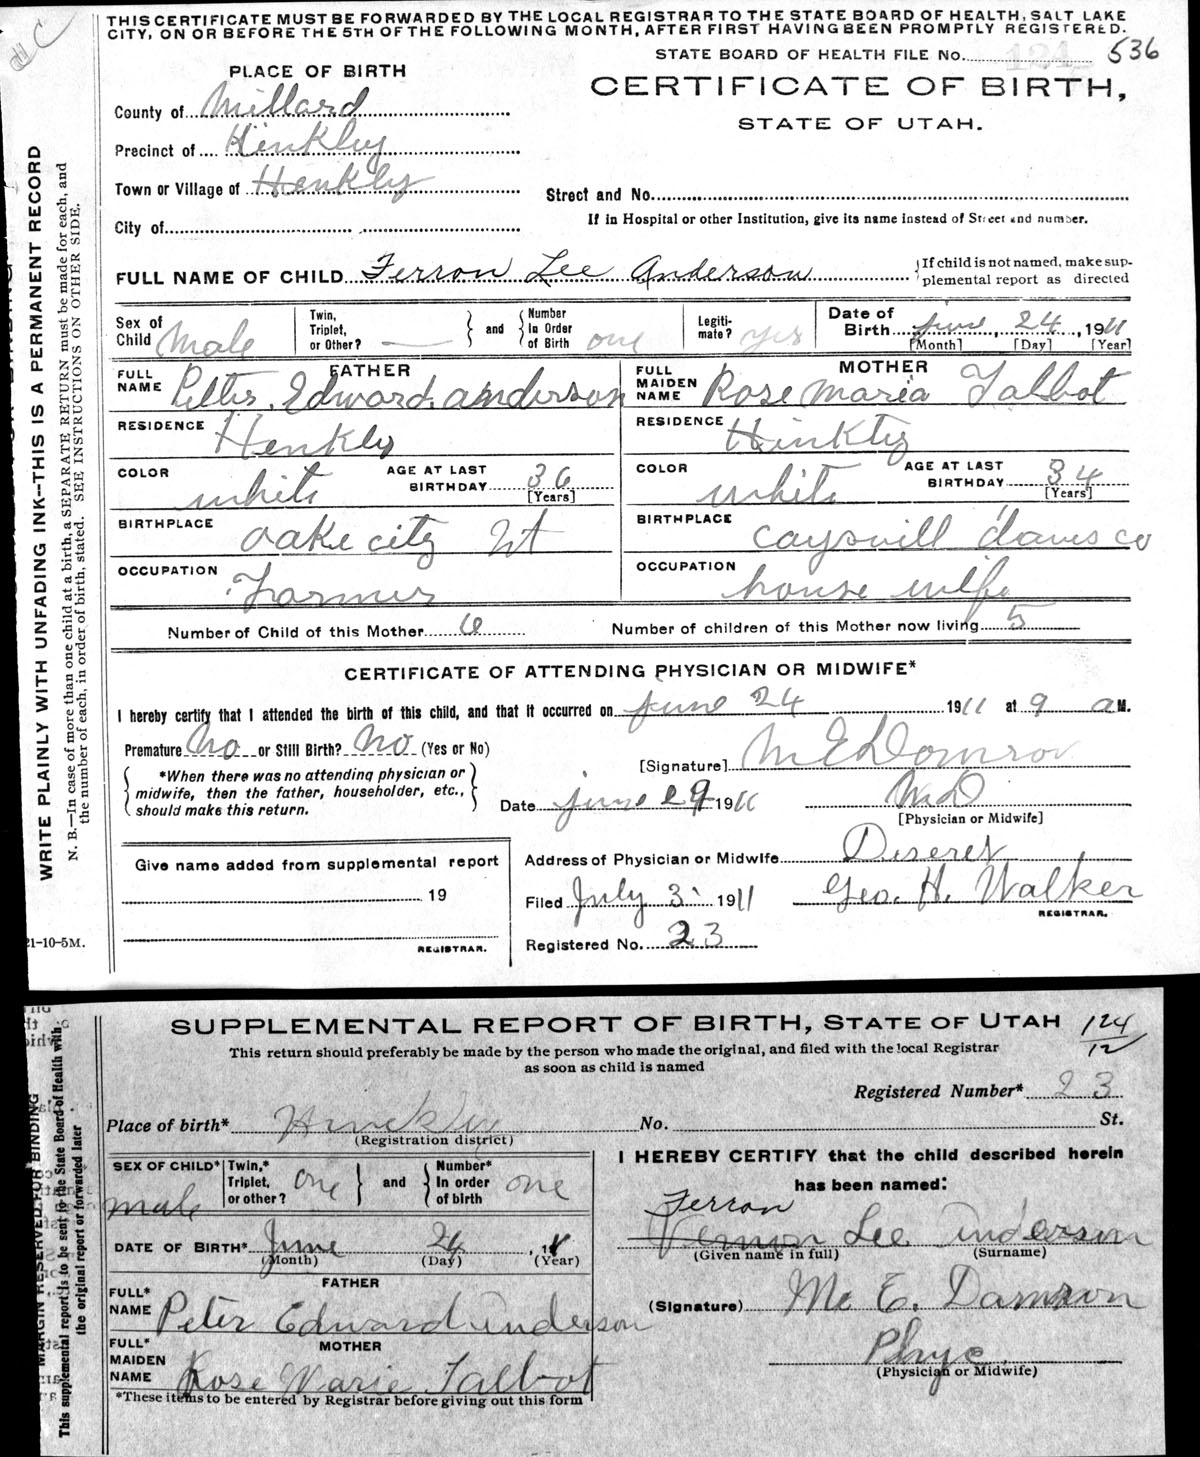 THIS CERTIFICATE MUST BE FORWARDED BY THE LOCAL REGISTRAR TO THE STATE BOARD OF HEALTH, SALT LAKE
CITY, ON OR BEFORE THE 5TH OF THE FOLLOWING MONTH, AFTER FIRST HAVING BEEN PROMPTLY REGISTERED.
STATE BOARD OF HEALTH FILE NO. 124 536
PLACE OF BIRTH
CERTIFICATE OF BIRTH,
STATE OF UTAH.
County of Millard
Precinct of Hinkley
Town or Village of Henkly
Street and No.
If in Hospital or other Institution, give its name instead of Street and number.
City of
FULL NAME OF CHILD Ferron Lee Anderson
If child is not named, make sup-
plemental report as directed
Sex of Child Male
Twin, Triplet, or Other? —
and
Number In Order of Birth one
Legiti-mate? yes
Date of Birth June, 24, 1911
[Month] [Day] [Year]
FATHER
MOTHER
FULL NAME Petter Edward anderson
FULL MAIDEN NAME Rose Maria Talbot
RESIDENCE Henkly
RESIDENCE Hinkty
COLOR white
AGE AT LAST BIRTHDAY 36 [Years]
COLOR white
AGE AT LAST BIRTHDAY 34 [Years]
BIRTHPLACE oake city Ut
BIRTHPLACE caysvill davis co
OCCUPATION Farmer
OCCUPATION house wife
Number of Child of this Mother 6
Number of children of this Mother now living 5
CERTIFICATE OF ATTENDING PHYSICIAN OR MIDWIFE*
I hereby certify that I attended the birth of this child, and that it occurred on June 24 1911 at 9 a M.
Premature No or Still Birth? No (Yes or No)
[Signature] M E Damron
*When there was no attending physician or
midwife, then the father, householder, etc.,
should make this return.
Date June 29 1911
MD
[Physician or Midwife]
Give name added from supplemental report
19
REGISTRAR.
Address of Physician or Midwife Deseret
Filed July 3 1911 Geo. H. Walker
REGISTRAR.
Registered No. 23
21-10-5M.
WRITE PLAINLY WITH UNFADING INK--THIS IS A PERMANENT RECORD
N. B.—In case of more than one child at a birth, a SEPARATE RETURN must be made for each, and
the number of each, in order of birth, stated. SEE INSTRUCTIONS ON OTHER SIDE.
SUPPLEMENTAL REPORT OF BIRTH, STATE OF UTAH 124/12
This return should preferably be made by the person who made the original, and filed with the local Registrar
as soon as child is named
Registered Number* 23
Place of birth* Hinckley No. St.
(Registration district)
SEX OF CHILD* male
Twin,* Triplet, or other? one
and
Number* In order of birth one
I HEREBY CERTIFY that the child described herein
has been named:
Ferron
Vernon Lee Anderson
(Given name in full) (Surname)
DATE OF BIRTH* June 24, 11
(Month) (Day) (Year)
FATHER
FULL* NAME Peter Edward Anderson
(Signature) Mc E. Damron
Phyc
(Physician or Midwife)
MOTHER
FULL* MAIDEN NAME Rose Marie Talbot
*These items to be entered by Registrar before giving out this form
MARGIN RESERVED FOR BINDING
This supplemental report is to be sent to the State Board of Health with
the original report or forwarded later